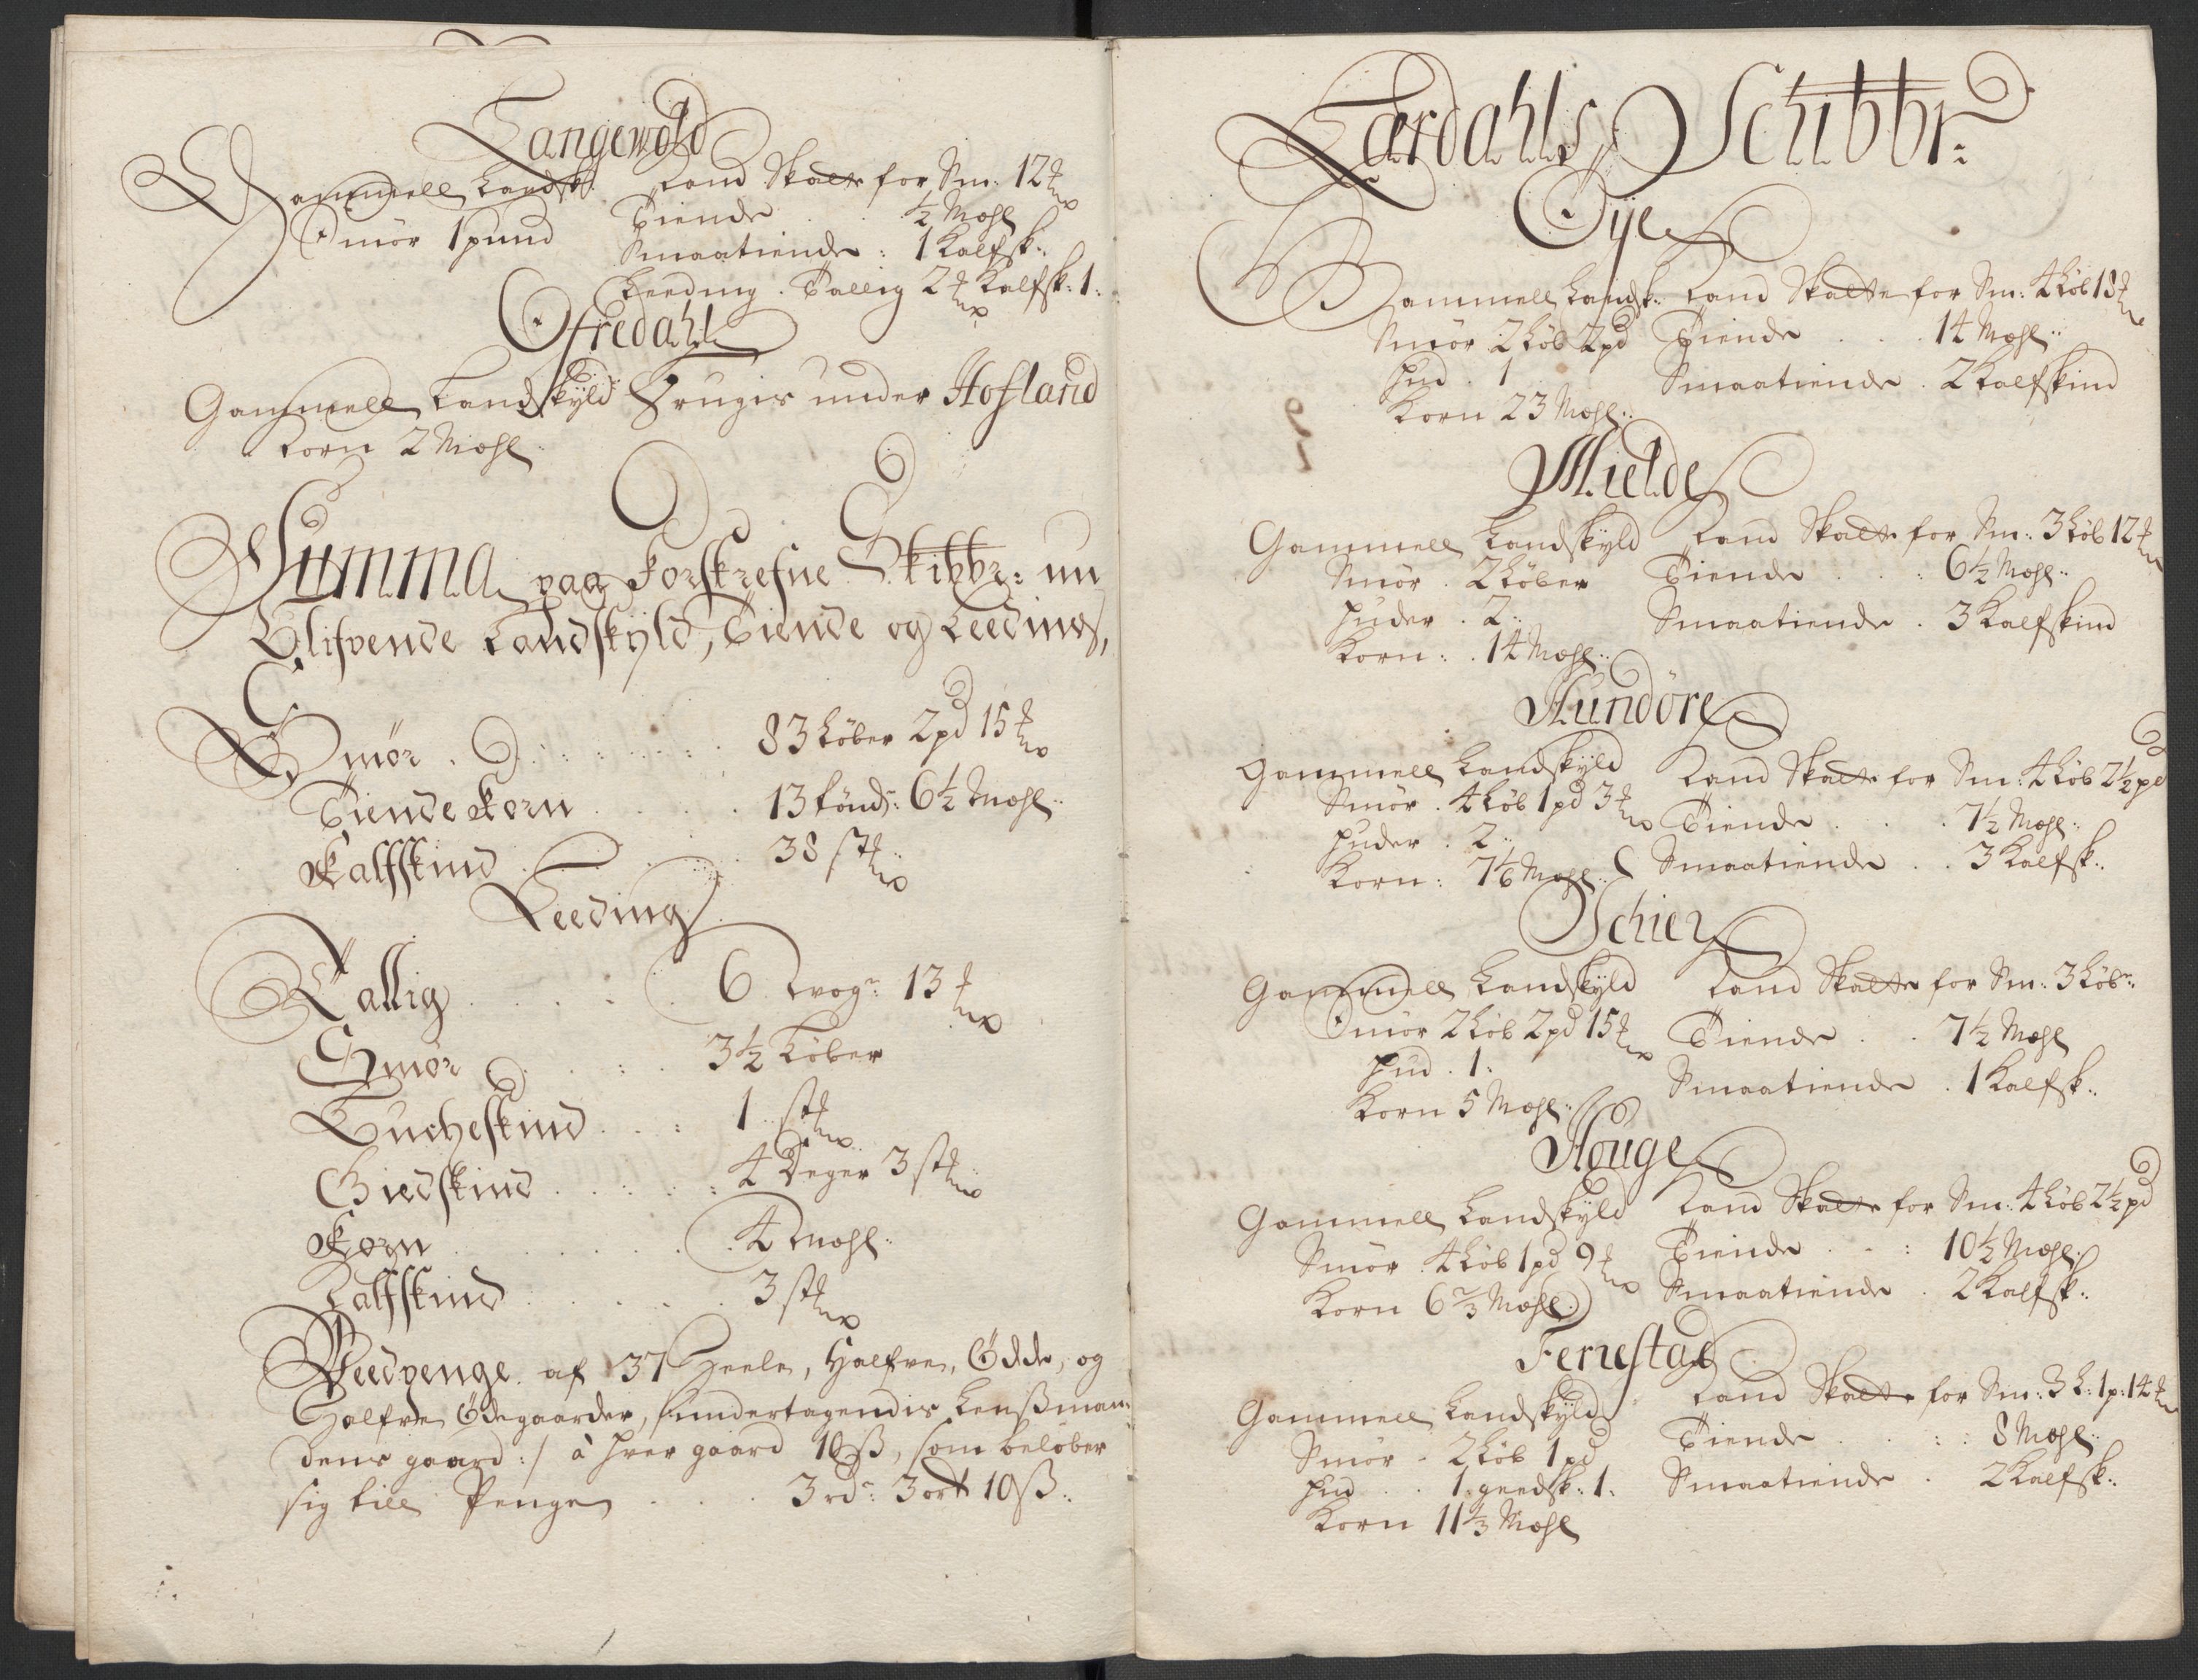 Langewold
Gammell Landsk: Land Skatt for Sm: 12 ℔
Smör 1 pund Tiende . . ½ Mæhl
Smaatiende : 1 Kalfsk:
Leeding . Tallig 2 ℔ Kalfsk: 1:
Ofredahl
Gammell Landskyld Brugis under Hofland
Korn 2 Mæhl
Summa paa forskrefne Skibbr: nu
Blifvende Landskyld, Tiende og Leeding,
Smör . . . . 83 Løber 2 pd 15 ℔
Tiende Korn . . . . 13 tönd: 6½ Mæhl:
Kalfskind . . . 38 st:
Leeding
Tallig . . . . 6 woge: 13 ℔
Smör . . . . 3½ Løber
Buckeskind . . : 1 st:
Giedskind . . . : 4 Deger 3 st:
Korn . . . . 4 Mæhl:
Kalfskind . . . . 3 st:
Veedpenge af 37 Heele, Halfve, Ödde, og
Halfve Ödegaarder, /:undertagendis Lensman:
dens gaard:/ à hver gaard 10 ß, som beløber
sig till Penge . . . 3 rd: 3 ort 10 ß:
Lærdahls Schibbr:
Öije
Gammell Landsk: Land Skatte for Sm: 4 Løb 18 ℔
Smör 2 Løb 2 pd Tiende . . . 14 Mæhl:
Hud . 1 Smaatiende . 2 Kalfskind
Korn 23 Mæhl:
Mielde
Gammell Landskyld Land Skatt for Sm: 3 Løb 12 ℔
Smör . 2 Løber Tiende . . : 6½ Mæhl:
Huder . 2: Smaatiende . 3 Kalfskind
Korn : . 14 Mæhl:
Hundöre
Gammell Landskyld Land Skatt for Sm: 4 Løb 2½ pd
Smör . 4 Løb 1 pd 3 ℔ Tiende . . . 7½ Mæhl:
Huder . 2: Smaatiende . . 3 Kalfsk:
Korn : 7⅙ Mæhl:
Schier
Gammell Landskyld Land Skatte for Sm: 3 Løbr:
Smör 2 Løb 2 pd 15 ℔ Tiende . . 7½ Mæhl
Hud . 1: Smaatiende . 1 Kalfsk:
Korn 5 Mæhl:
Houge
Gammell Landskyld Land Skatt for Sm: 4 Løb 2½ pd
Smör . 4 Løb 1 pd 9 ℔ Tiende . . : 10½ Mæhl:
Korn 6⅔ Mæhl: Smaatiende . 2 Kalfsk:
Ferestad
Gammell Landskyld Land Skatt for Sm: 3 L: 1 p: 14 ℔
Smör . 2 Løb 1 pd Tiende . . : : 8 Mæhl:
Hud . . 1. geedsk: 1: Smaatiende . 2 Kalfsk:
Korn 11⅓ Mæhl